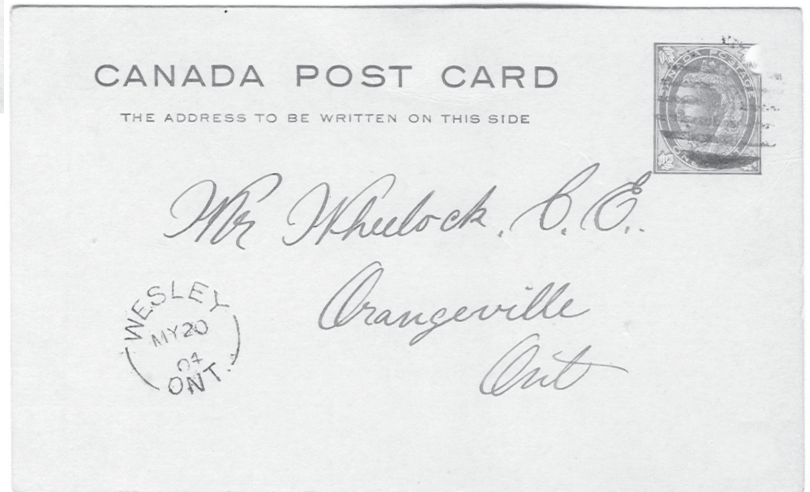 CANADA POST CARD
THE ADDRESS TO BE WRITTEN ON THIS SIDE
CANADA POSTAGE
Mr Wheelock, C. E.
Orangeville
Ont
WESLEY
MY 20
04
ONT.